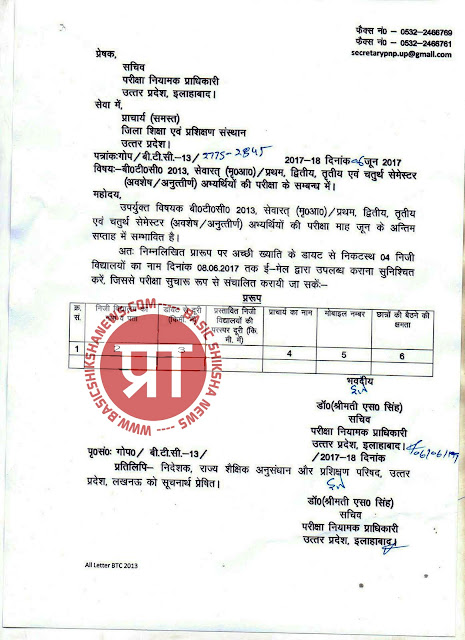 फैक्स नं० – 0532-2466769
फैक्स नं० – 0532-2466761
secretarypnp.up@gmail.com
प्रेषक,
सचिव
परीक्षा नियामक प्राधिकारी
उत्तर प्रदेश, इलाहाबाद।
सेवा में,
प्राचार्य (समस्त)
जिला शिक्षा एवं प्रशिक्षण संस्थान
उत्तर प्रदेश।
पत्रांक:गोप/बी.टी.सी.–13/2775-2845 2017-18 दिनांक 06 जून 2017
विषयः–बी०टी०सी० 2013, सेवारत् (मृ०आ०)/प्रथम, द्वितीय, तृतीय एवं चतुर्थ सेमेस्टर
(अवशेष/अनुत्तीर्ण) अभ्यर्थियों की परीक्षा के सम्बन्ध में।
महोदय,
उपर्युक्त विषयक बी०टी०सी० 2013, सेवारत् (मृ०आ०)/प्रथम, द्वितीय, तृतीय
एवं चतुर्थ सेमेस्टर (अवशेष/अनुत्तीर्ण) अभ्यर्थियों की परीक्षा माह जून के अन्तिम
सप्ताह में सम्भावित है।
अतः निम्नलिखित प्रारूप पर अच्छी ख्याति के डायट से निकटस्थ 04 निजी
विद्यालयों का नाम दिनांक 08.06.2017 तक ई–मेल द्वारा उपलब्ध कराना सुनिश्चित
करें, जिससे परीक्षा सुचारू रूप से संचालित करायी जा सकेः–
प्ररूप
क्र. सं. निजी विद्यालय का नाम व पता डायट से दूरी (किमी. में) प्रस्तावित निजी विद्यालयों की परस्पर दूरी (कि. मी. में) प्राचार्य का नाम मोबाइल नम्बर छात्रों की बैठने की क्षमता
1 2 3 4 5 6
प्रा
WWW.BASICSHIKSHANEWS.COM ---- BASIC SHIKSHA NEWS ----
भवदीय
डॉ०(श्रीमती एस० सिंह)
सचिव
परीक्षा नियामक प्राधिकारी
उत्तर प्रदेश, इलाहाबाद।
06/06/17
पृ०संः गोप०/ बी.टी.सी.–13/ /2017-18 दिनांक
प्रतिलिपि– निदेशक, राज्य शैक्षिक अनुसंधान और प्रशिक्षण परिषद, उत्तर
प्रदेश, लखनऊ को सूचनार्थ प्रेषित।
डॉ०(श्रीमती एस० सिंह)
सचिव
परीक्षा नियामक प्राधिकारी
उत्तर प्रदेश, इलाहाबाद।
All Letter BTC 2013